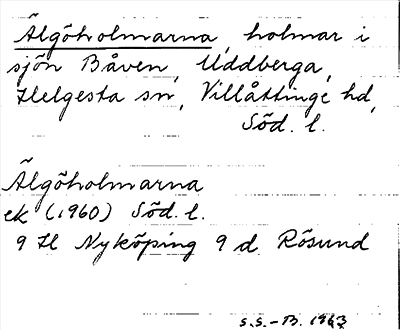 Älgöholmarna, holmar i
sjön Båven, Uddberga,
Helgesta sn, Villåttinge hd,
Söd. l.
Älgöholmarna
ek (1960) Söd. l.
9 H Nyköping 9 d Rösund
S.S.-B. 1963